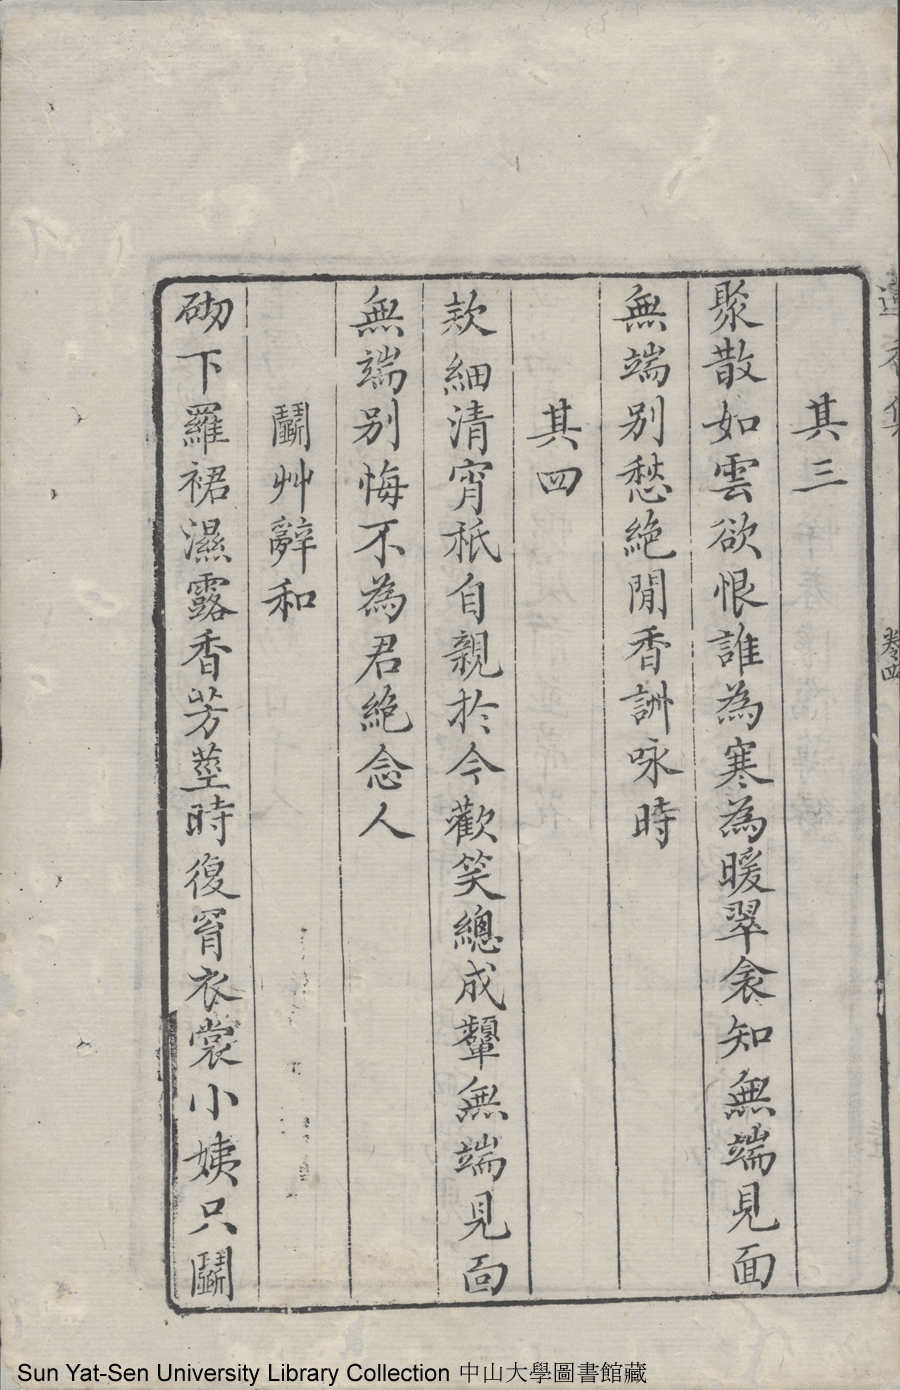 其三
聚散如雲欲恨誰為寒為暖翠衾知無端見面
無端別愁絶閒香詶咏時
其四
款細清宵秖自親於今歡笑總成顰無端見面
無端別悔不為君絶念人
鬭艸辭和
砌下羅裙濕露香芳莖時復罥衣裳小姨只鬭
卷四
Sun Yat-Sen University Library Collection 中山大學圖書館藏